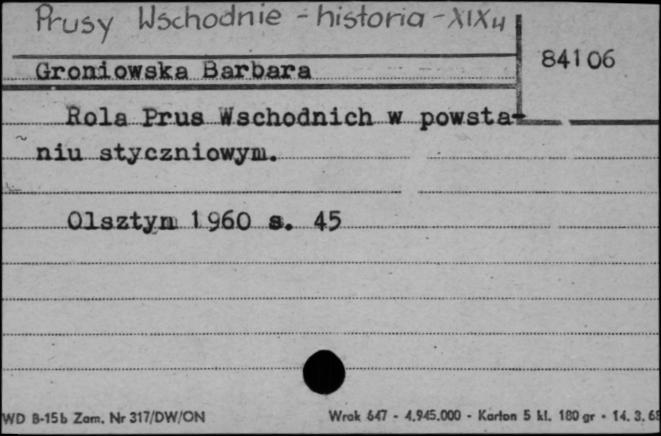 Prusy Wschodnie - historia - XIX w
84106
Groniowska Barbara
Rola Prus Wschodnich w powsta-
niu styczniowym.
Olsztyn 1960 s. 45
WD B-15b Zam. Nr 317/DW/ON
Wrak 647 - 4.945.000 - Karton 5 kl. 180 gr - 14. 3. 68